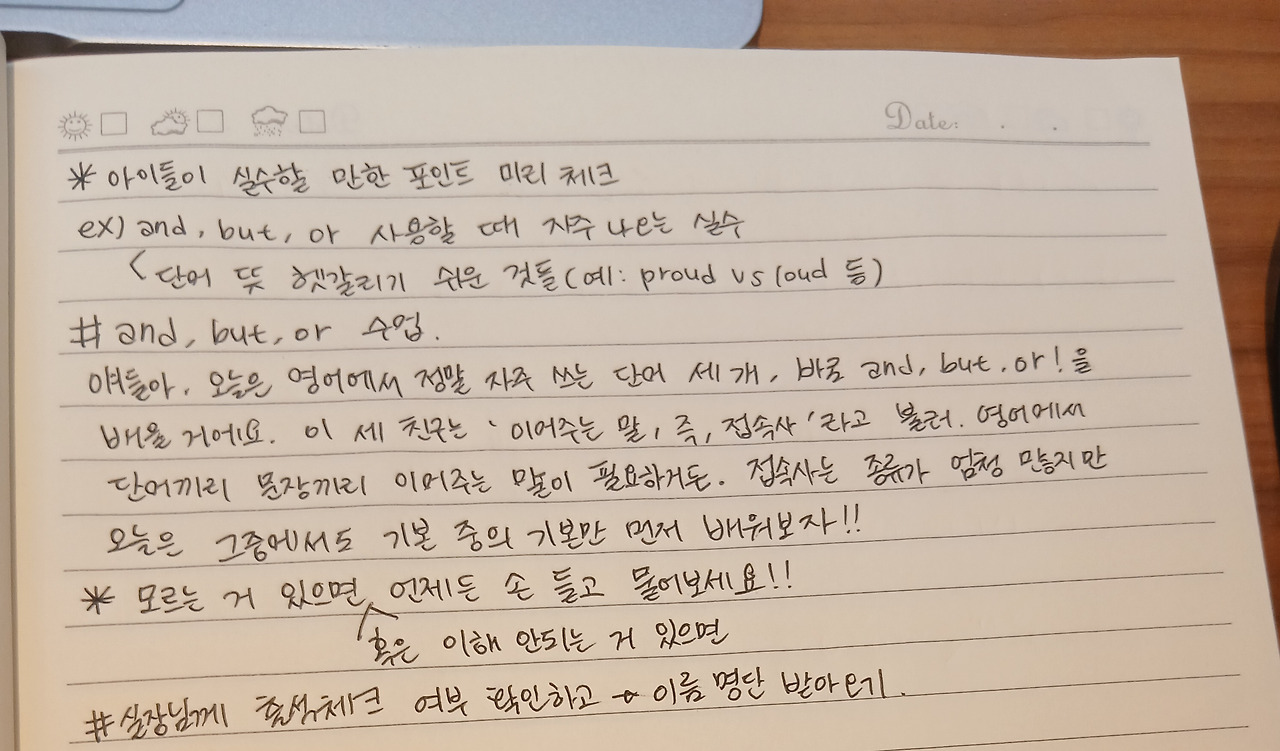 Date: . .
* 아이들이 실수할 만한 포인트 미리 체크
ex) and, but, or 사용할 때 자주 나오는 실수
< 단어 뜻 헷갈리기 쉬운 것들(예: proud vs loud 등)
# and, but, or 수업.
얘들아, 오늘은 영어에서 정말 자주 쓰는 단어 세 개, 바로 and, but, or! 을
배울 거에요. 이 세 친구는 '이어주는 말, 즉, 접속사'라고 불러. 영어에서
단어끼리 문장끼리 이어주는 말이 필요하거든. 접속사는 종류가 엄청 많지만
오늘은 그중에서도 기본 중의 기본만 먼저 배워보자!!
* 모르는 거 있으면 언제든 손 들고 물어보세요!!
혹은 이해 안되는 거 있으면
# 실장님께 출석체크 여부 확인하고 → 이름 명단 받아오기.